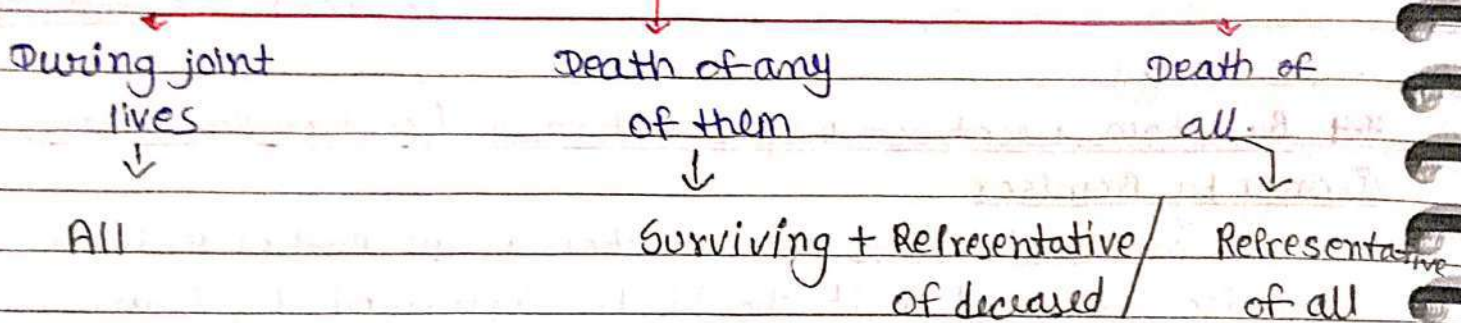 During joint lives
↓
All
Death of any of them
↓
Surviving + Relresentative of deceased
Death of all.
↓
Relresentative of all